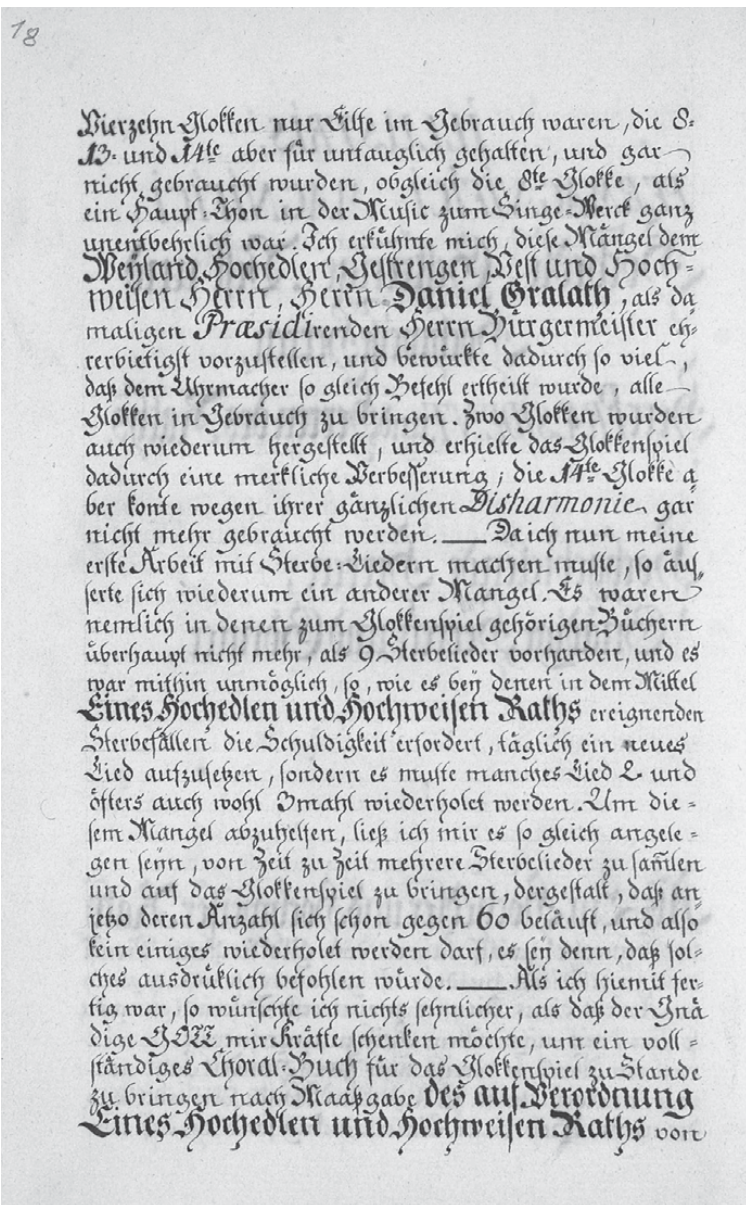 18
Vierzehn Glokken nur Eilfe im Gebrauch waren, die 8=
13= und 14te aber für untauglich gehalten, und gar
nicht gebraucht wurden, obgleich die 8te Glokke, als
ein Haupt=Thon in der Music zum Singe=Werck ganz
unentbehrlich war. Ich erkühnte mich, diese Mängel dem
Weyland, Hochedlen, Gestrengen, Vest und Hoch=
weisen Herrn, Herrn Daniel Gralath, als da
maligen Præsidirenden Herrn Bürgermeister eh=
rerbietigst vorzustellen, und bewürkte dadurch so viel,
daß dem Uhrmacher so gleich Befehl ertheilt wurde, alle
Glokken in Gebrauch zu bringen. Zwo Glokken wurden
auch wiederum hergestellt, und erhielte das Glokkenspiel
dadurch eine merkliche Verbesserung; die 14te Glokke a
ber konte wegen ihrer gänzlichen Disharmonie gar
nicht mehr gebraucht werden. — Da ich nun meine
erste Arbeit mit Sterbe=Liedern machen muste, so äus=
serte sich wiederum ein anderer Mangel. Es waren
nemlich in denen zum Glokkenspiel gehörigen Büchern
überhaupt nicht mehr, als 9 Sterbelieder vorhanden, und es
war mithin unmöglich, so, wie es bey denen in dem Mittel
Eines Hochedlen und Hochweisen Raths ereignenden
Sterbefällen die Schuldigkeit erfordert, täglich ein neues
Lied aufzusetzen, sondern es muste manches Lied 2 und
öfters auch wohl 3mahl wiederholet werden. Um die=
sem Mangel abzuhelfen, ließ ich mir es so gleich angele=
gen seyn, von Zeit zu Zeit mehrere Sterbelieder zu sam̅len
und auf das Glokkenspiel zu bringen, dergestalt, daß an
jetzo deren Anzahl sich schon gegen 60 beläuft, und also
kein einiges wiederholet werden darf, es sey denn, daß sol=
ches ausdrüklich befohlen würde. — Als ich hiemit fer=
tig war, so wünschte ich nichts sehnlicher, als daß der Gnä
dige GOTT mir Kräfte schenken möchte, um ein voll=
ständiges Choral=Buch für das Glokkenspiel zu Stande
zu bringen nach Maaßgabe des auf Verordnung
Eines Hochedlen und Hochweisen Raths von